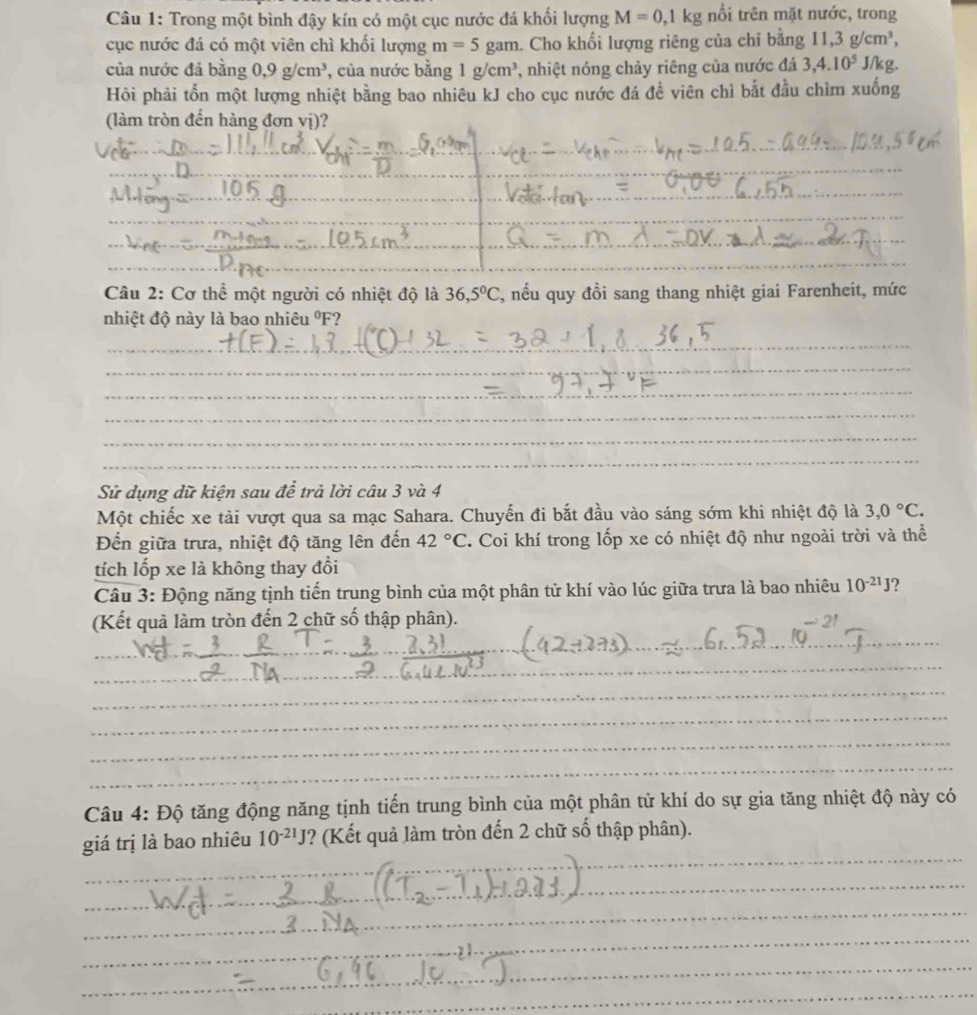 Câu 1: Trong một bình đậy kín có một cục nước đá khối lượng M = 0,1 kg nổi trên mặt nước, trong
cục nước đá có một viên chì khối lượng m = 5 gam. Cho khối lượng riêng của chì bằng 11,3 g/cm³,
của nước đá bằng 0,9 g/cm³, của nước bằng 1 g/cm³, nhiệt nóng chảy riêng của nước đá 3,4.10⁵ J/kg.
Hỏi phải tốn một lượng nhiệt bằng bao nhiêu kJ cho cục nước đá để viên chì bắt đầu chìm xuống
(làm tròn đến hàng đơn vị)?
= 111,11 cm³ V chì = m/D
= 105 g
= 105 cm³
Q = m λ = DV λ ≈
Câu 2: Cơ thể một người có nhiệt độ là 36,5⁰C, nếu quy đổi sang thang nhiệt giai Farenheit, mức
nhiệt độ này là bao nhiêu ⁰F?
t(F) = 1,8 t(°C) + 32 = 32 + 1,8 36,5
= 97,7 °F
Sử dụng dữ kiện sau để trả lời câu 3 và 4
Một chiếc xe tải vượt qua sa mạc Sahara. Chuyến đi bắt đầu vào sáng sớm khi nhiệt độ là 3,0 °C.
Đến giữa trưa, nhiệt độ tăng lên đến 42 °C. Coi khí trong lốp xe có nhiệt độ như ngoài trời và thể
tích lốp xe là không thay đổi
Câu 3: Động năng tịnh tiến trung bình của một phân tử khí vào lúc giữa trưa là bao nhiêu 10⁻²¹J?
(Kết quả làm tròn đến 2 chữ số thập phân).
Wđ = 3/2 R/NA T = 3/2 (42+273) ≈ 6,52 10⁻²¹ J
Câu 4: Độ tăng động năng tịnh tiến trung bình của một phân tử khí do sự gia tăng nhiệt độ này có
giá trị là bao nhiêu 10⁻²¹J? (Kết quả làm tròn đến 2 chữ số thập phân).
Wđ = 3/3 R/NA ((T₂ - T₁) + 273)
= 6,46 10⁻²¹ J